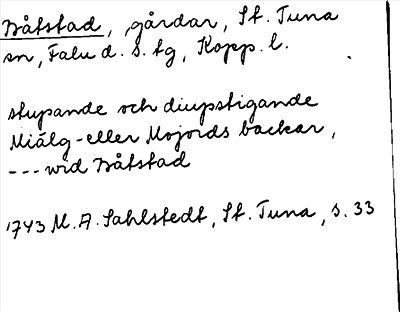 Båtstad, gårdar, St. Tuna
sn, Falu d. s. tg, Kopp. l.
stupande och diupstigande
Miälg- eller Mojords backar,
--- wid Båtstad
1743 M. A. Sahlstedt, St. Tuna, s. 33